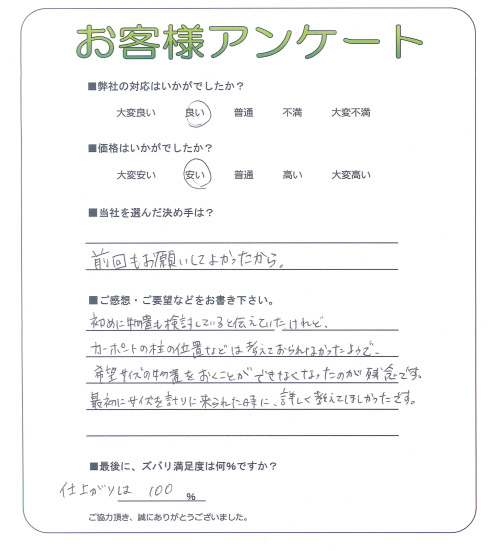 お客様アンケート
■弊社の対応はいかがでしたか？
大変良い 良い 普通 不満 大変不満
■価格はいかがでしたか？
大変安い 安い 普通 高い 大変高い
■当社を選んだ決め手は？
前回もお願いしてよかったから。
■ご感想・ご要望などをお書き下さい。
初めに物置も検討していると伝えていたけれど、
カーポートの柱の位置などは考えておられなかったようで、
希望サイズの物置をおくことができなくなったのが残念です。
最初にサイズを計りに来られた時に、詳しく考えてほしかったです。
■最後に、ズバリ満足度は何%ですか？
仕上がりは 100 %
ご協力頂き、誠にありがとうございました。